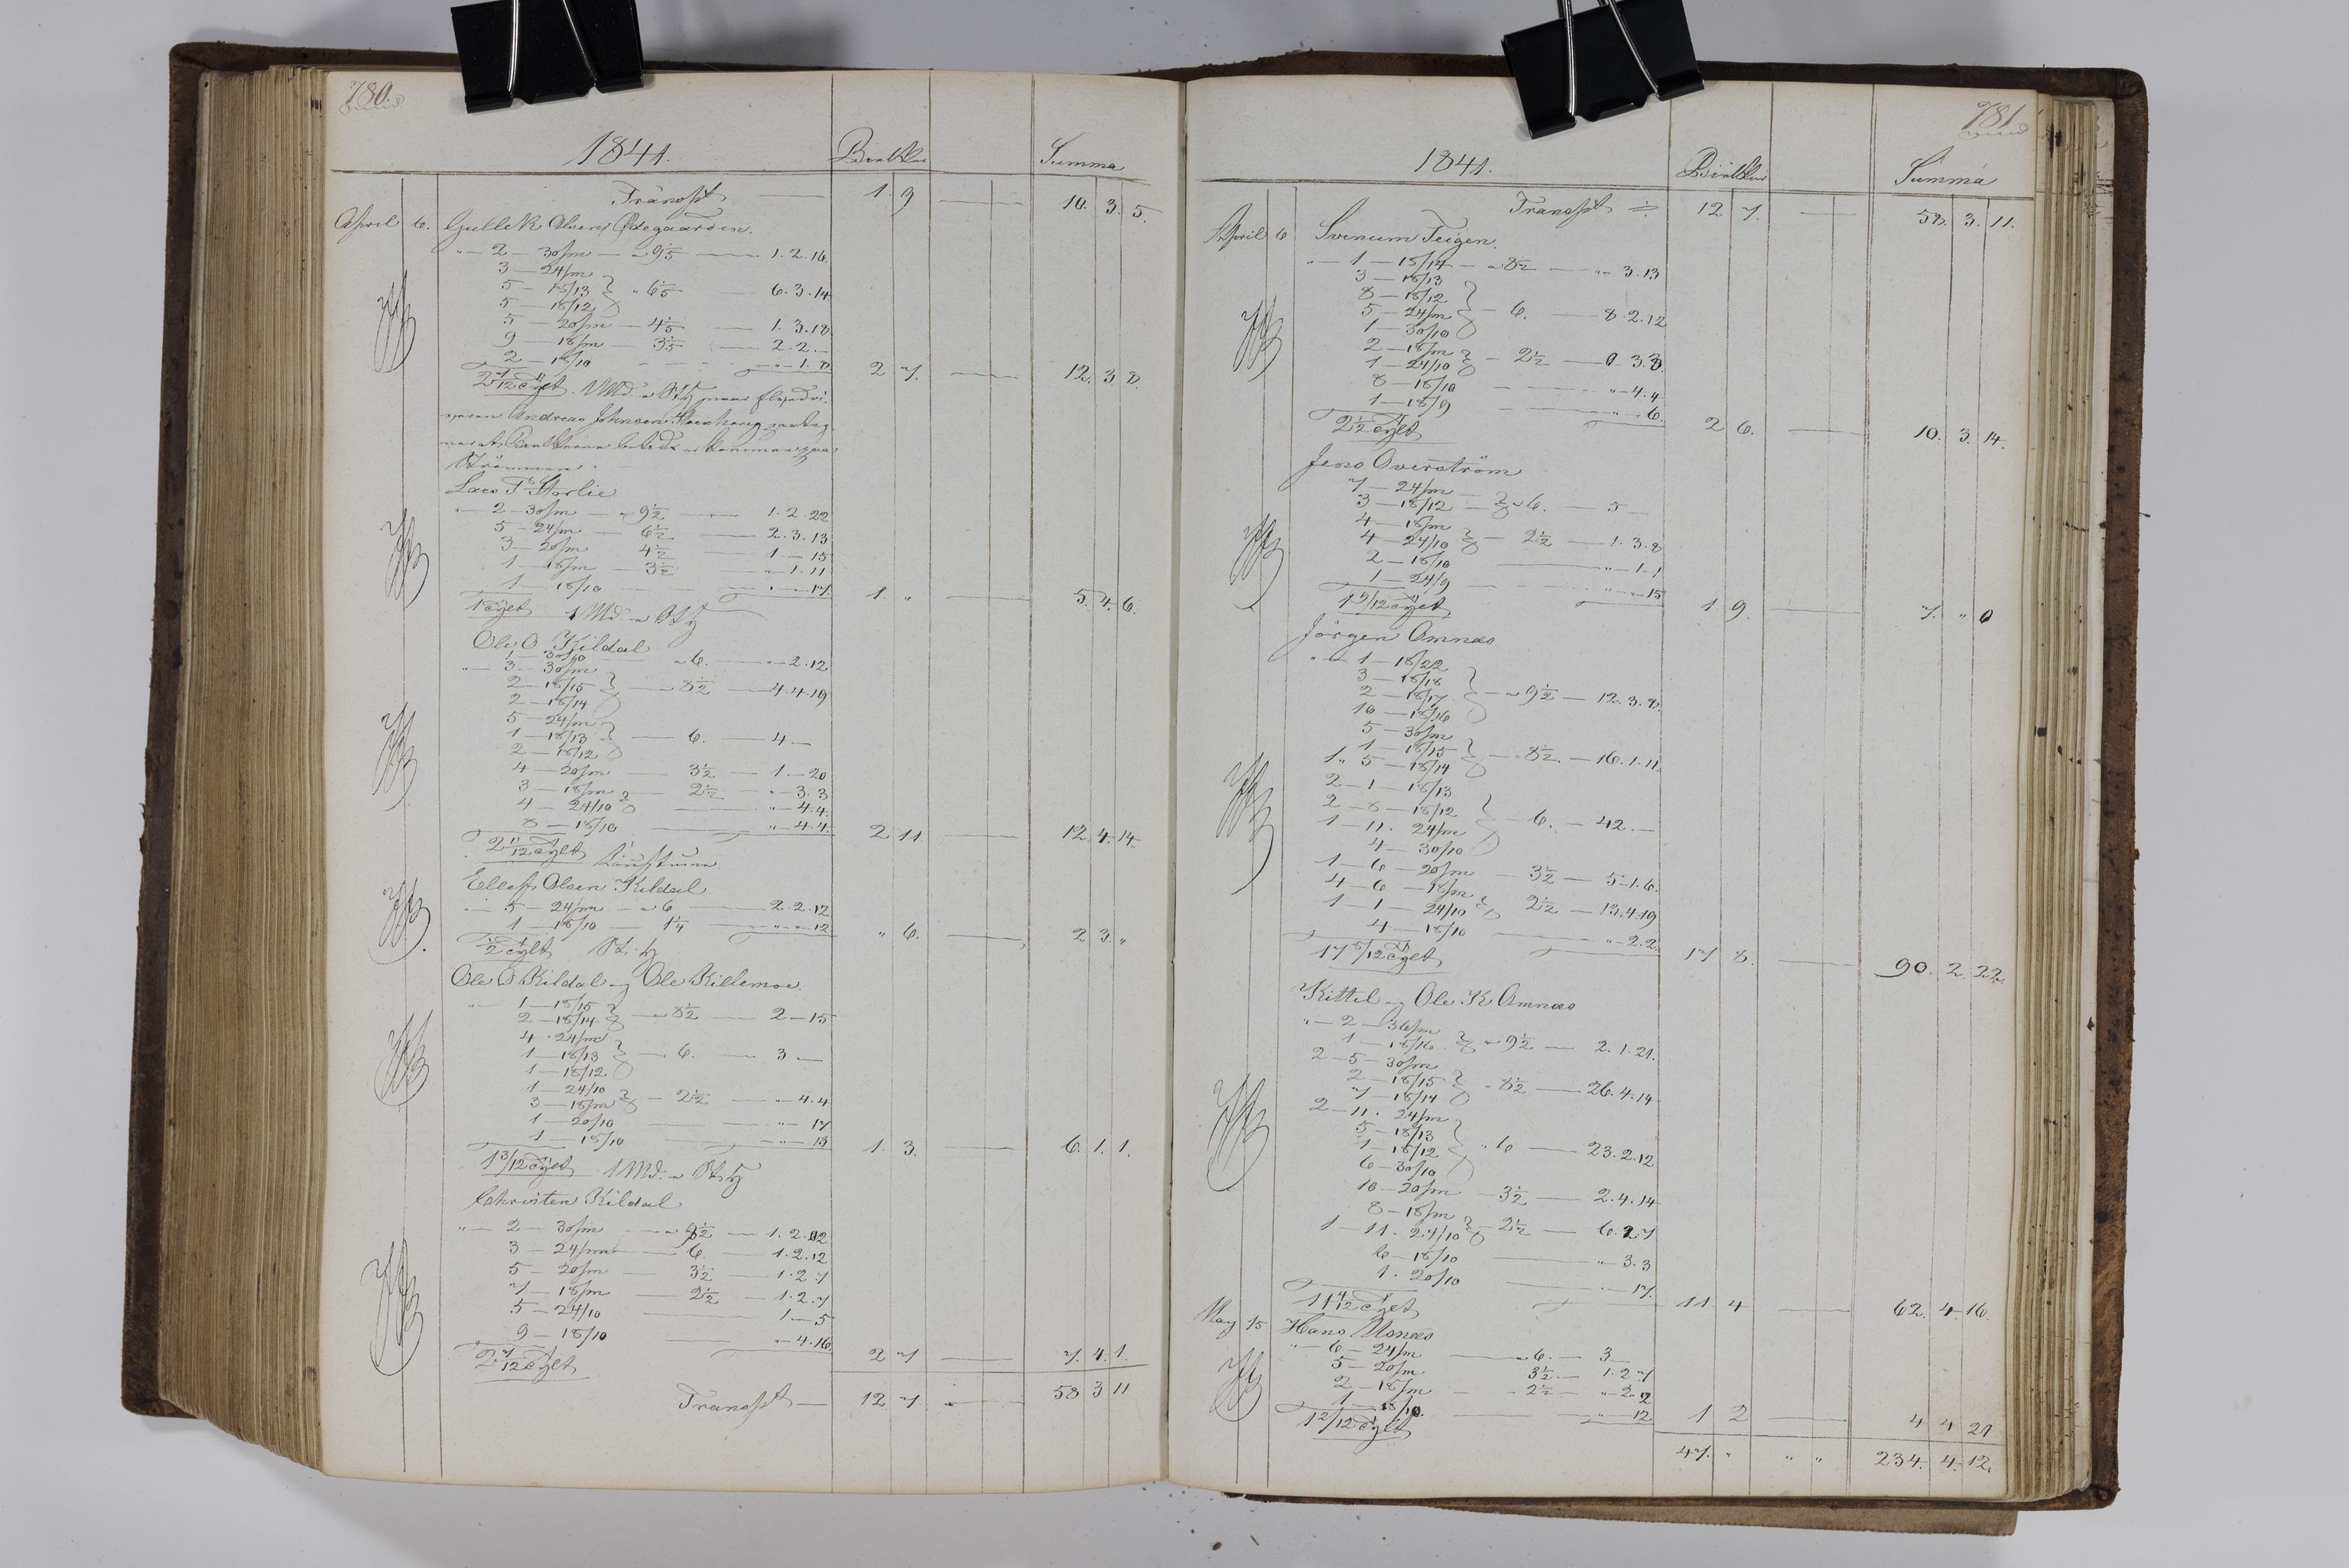 780.
1841. Summa
Transpt — 1. 9 — 10. 3. 5.
April 6. Gullek Olsen Ødegaarden.
"— 2 — 30/m — a 9 1/5 — 1. 2. 16.
3 — 24/m
5 — 18/13 } " 6 1/5 — 6. 3. 14
5 — 18/12
5 — 20/m — 4 1/5 — 1. 3. 18
9 — 18/m — 3 1/5 — 2. 2. —
2 — 18/10 — " — 1. 8
2 7/12 Tylt. 2 7. — 12. 3. 8.
Andreas Johnsen
Strömmen.
Lars T. Storlie
"— 2 — 30/m — a 9 1/2 — 1. 2. 22
5 — 24/m — 6 1/2 — 2. 3. 13
3 — 20/m 4 1/2 — 1 — 15
1 — 18/m — 3 1/2 — " — 1. 11
1 — 18/10 — " — 17
1 Tylt 1. " — 5. 4. 6.
Ole O Kildal
1 — 30/10 — a 6. — " — 2. 12
"— 3 — 30/m
2 — 18/15 } — a 8 1/2 — 4. 4. 19
2 — 18/14
5 — 24/m
1 — 18/13 } — 6. — 4 —
2 — 18/12
4 — 20/m — 3 1/2 — 1. — 20
3 — 18/m } — 2 1/2 — " — 3. 3
4 — 24/10 — " — 4. 4.
8 — 18/10 — " — 4. 4.
2 11/12 Tylt 2 11 — 12. 4. 14.
Ellef Olsen Kildal
"— 5 — 24/m — a 6 — 2. 2. 12
1 — 18/10 — 1 1/4 — " — " — 12
1/2 Tylt " 6. — 2 3. "
Ole O Kildal og Ole Killemoe.
"— 1 — 18/15 } — a 8 1/2 — 2 — 15
2 — 18/14
4 . 24/m
1 — 18/13 } — 6. — 3 —
1 — 18/12
1 — 24/10
3 — 18/m } — 2 1/2 — " — 4. 4
1 — 20/10 — " — 17
1 — 18/10 — " — 13
1 3/12 Tylt 1. 3. — 6. 1. 1.
Christen Kildal
"— 2 — 30/m — a 9 1/2 — 1. 2. 22
3 — 24/m — 6. — 1. 2. 12
5 — 20/m — 3 1/2 — 1. 2. 7
7 — 18/m — 2 1/2 — 1. 2. 7
5 — 24/10 — 1 — 5
9 — 18/10 — " — 4. 16.
2 7/12 Tylt 2 7 — 7. 4. 1.
Transpt — 12 7. — 58 3 11
781.
1841. Summa
Transpt 12 7. — 58. 3. 11.
April 6 Svenum Teigen.
"— 1 — 18/14 — a 8 1/2 — " 3. 13
3 — 18/13
8 — 18/12
5 — 24/m } — 6. — 8. 2. 12
1 — 30/10
2 — 18/m } — 2 1/2 — 0. 3. 8
1 — 24/10
8 — 18/10 — " — 4. 4
1 — 18/9 — " — 6.
2 1/2 Tylt 2 6. — 10. 3. 14.
Jens Overström
7 — 24/m
3 — 18/12 — } a 6. — 5 —
4 — 18/m
4 — 24/10 } — 2 1/2 — 1. 3. 8
2 — 18/10 — " — 1. 1
1 — 24/9 — " — 15
1 9/12 Tylt 1 9. — 7. " 0
Jörgen Omnæs
"— 1 — 18/22
3 — 18/18
2 — 18/17 } — a 9 1/2 — 12. 3. 8.
10 — 18/16
5 — 30/m
1 — 18/15 } — 8 1/2 — 16. 1. 11.
1 " 5 — 18/14
2 — 1 — 18/13
2 — 8 — 18/12
1 — 11. 24/m } — 6. — 42. —
4 — 30/10
1 — 6 — 20/m — 3 1/2 — 5 — 1. 6.
4 — 6 — 18/m
1 — 1 — 24/10 } 2 1/2 — 13. 4. 19
4 — 18/10 — " — 2. 2.
17 8/12 Tylt 17 8. — 90. 2. 22.
Kittel og Ole K Omnæs
"— 2 — 36/m
1 — 18/16 } a 9 1/2 — 2. 1. 21.
2 — 5 — 30/m
2 — 18/15 } . 8 1/2 — 26. 4. 14
7 — 18/14
2 — 11 . 24/m
5 — 18/13
1 — 18/12 } " 6 — 23. 2. 12
6 — 30/10
10 — 20/m — 3 1/2 — 2. 4. 14
8 — 18/m
1 — 11 . 24/10 } — 2 1/2 — 6. 2. 7
6 — 18/10 — " — 3. 3
1 . 20/10 — 17.
11 4/12 Tylt 11 4 — 62. 4. 16.
May 15 Hans Monæs
"— 6 — 24/m — a 6. — 3 —
5 — 20/m 3 1/2 — 1. 2. 7
2 — 18/m — 2 1/2 — " — 2. 2
1 — 18/10. — " — 12.
1 2/12 Tylt 1 2 — 4 4 21
47. " " " 234. 4. 12.